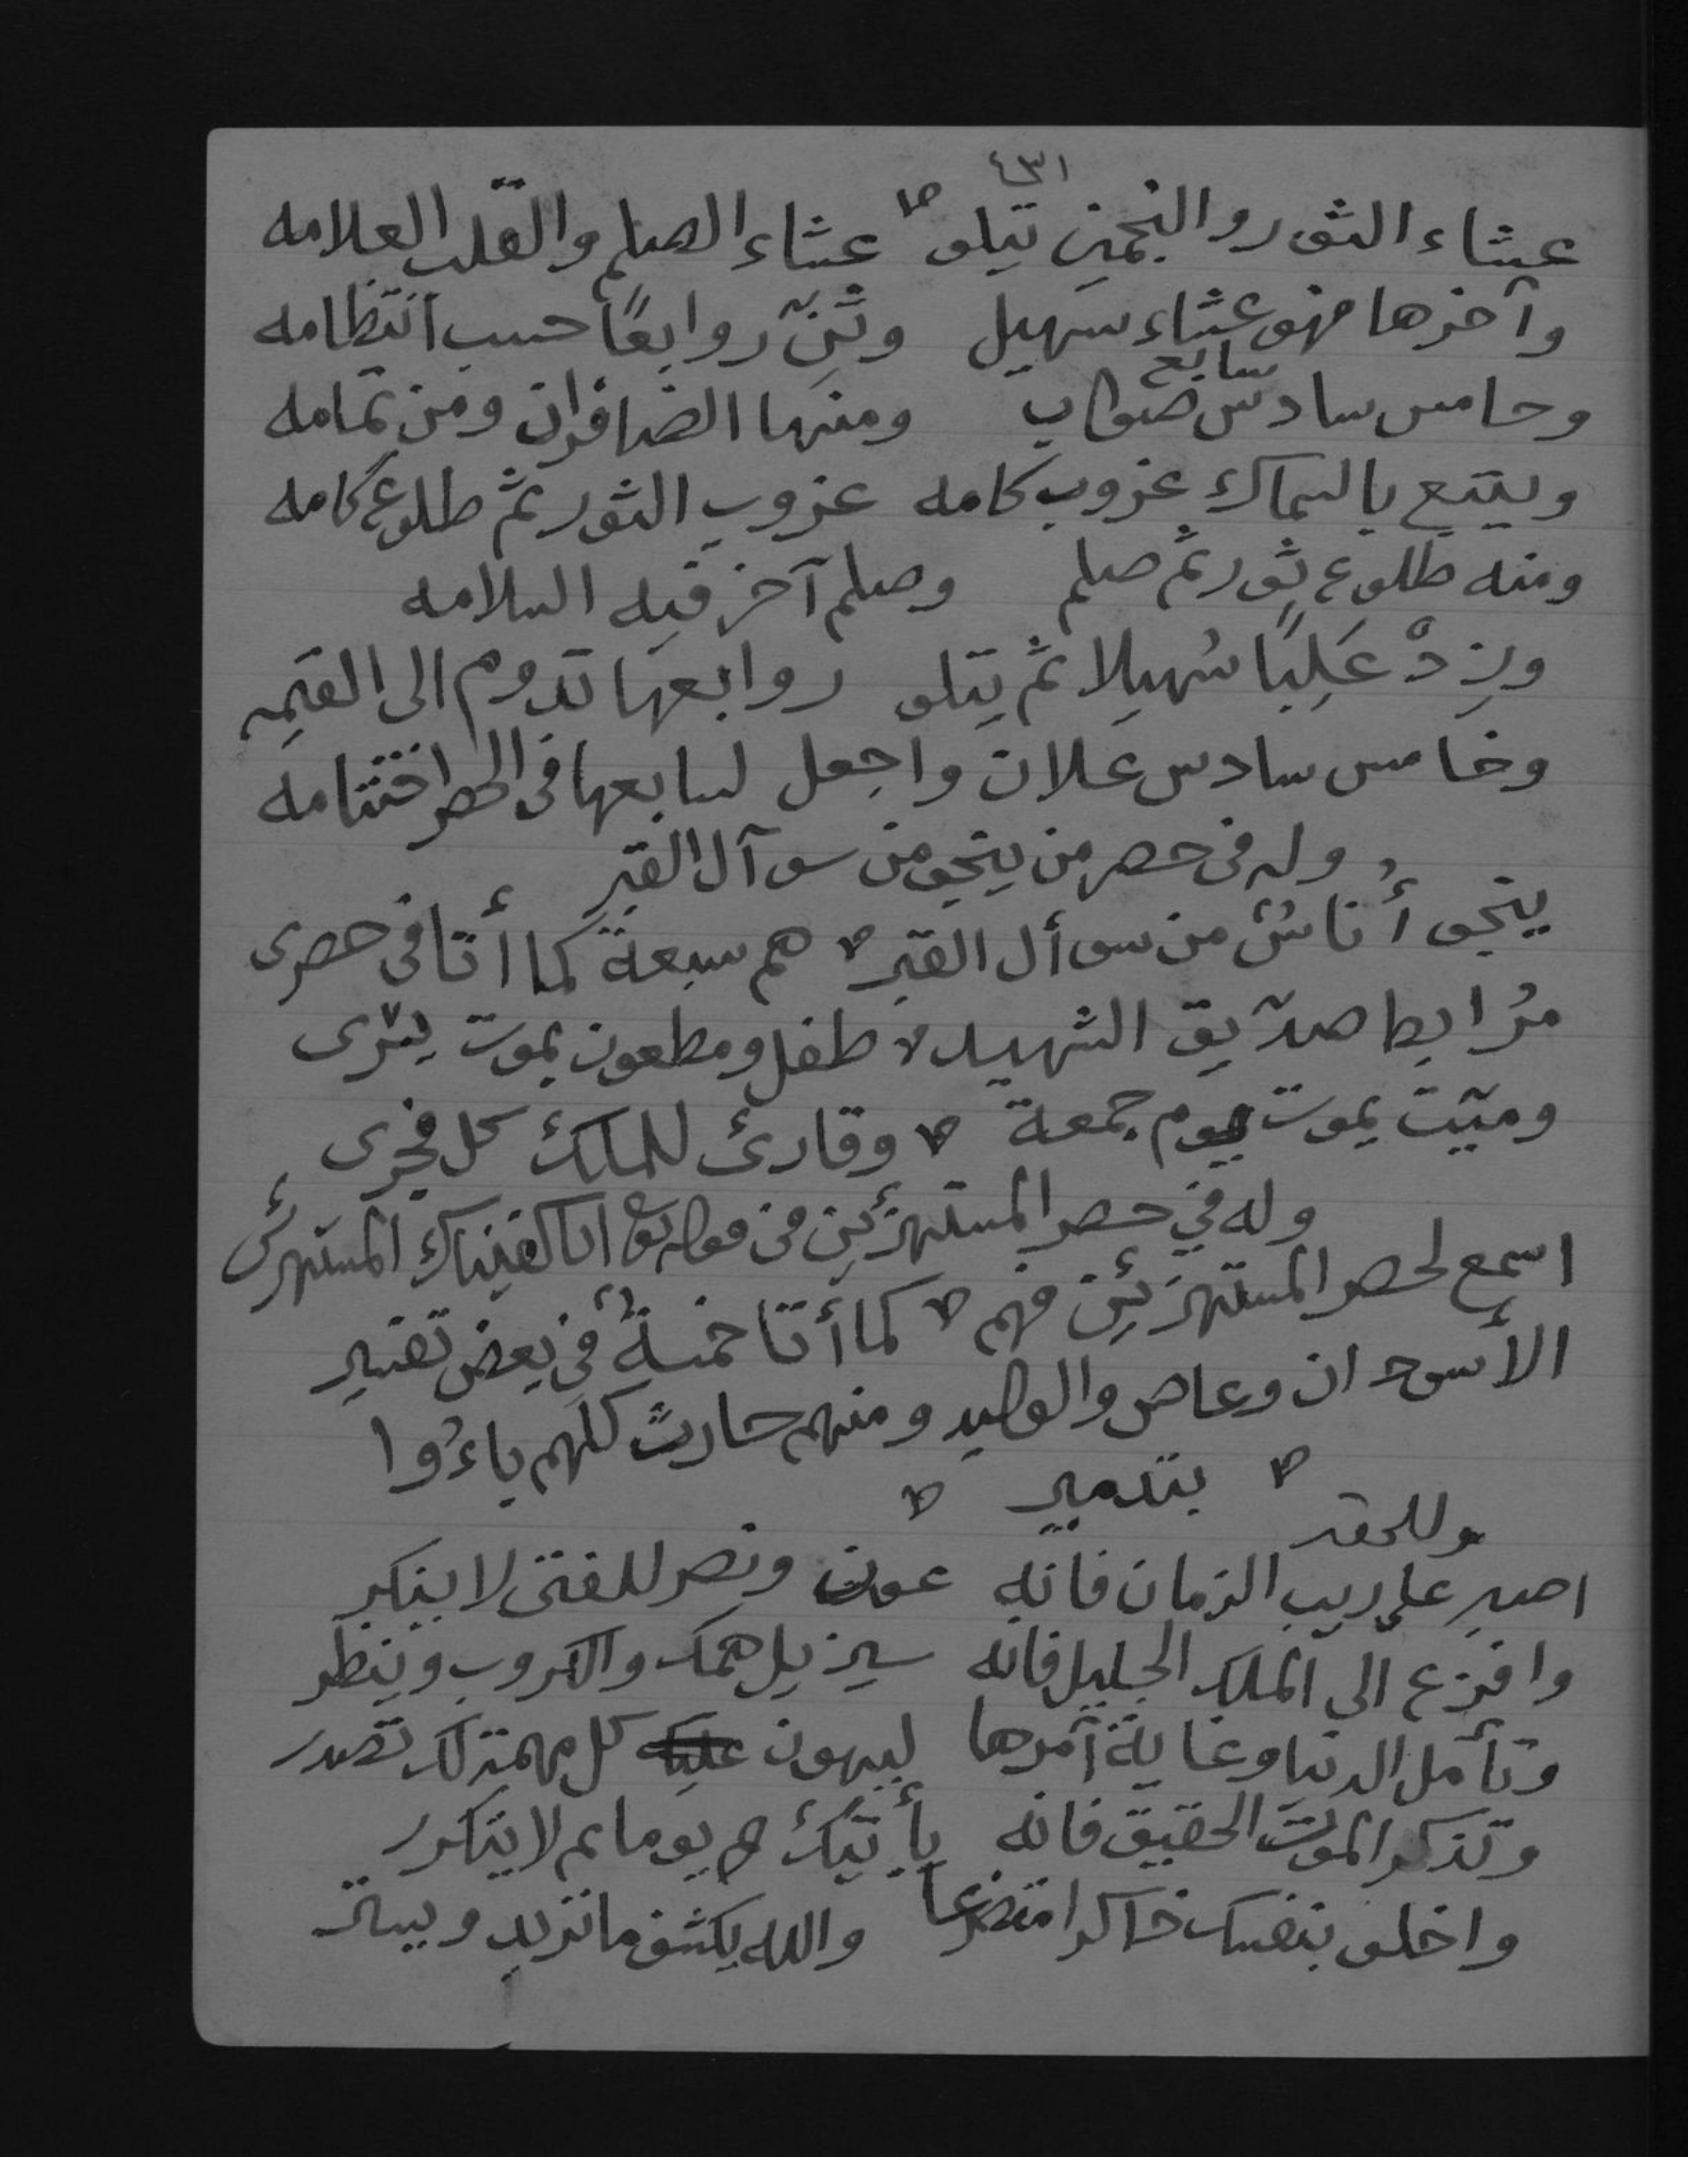 عشاء الثور والنجمين تتلو عشاء الصلم والقلب العلامه
وآخرها فهو عشاء سهيل وثنّ روابعًا حسب انتظامه
وخامس سادس سابع صواب ومنها الضافران ومن تمامه
ويتبع بالسماك غروب كامه غروب الثور ثم طلوع كامه
ومنه طلوع ثور ثم صلم وصلم آخر فيه السلامه
وزِدْ عَلِبًا سُهيلا ثم يتلو روابعها تدوم الى القيمه
وخامس سادس علان واجعل لسابعها فى الحصر اختتامه
وله فى حصر من ينجو من سوآل القبر
ينجو أُناسٌ من سوأل القبر هم سبعة كما أتا فى حصرى
مُرابط صدّيق الشهيد طفل ومطعون بموت يسرى
وميّت يموت يوم جمعة وقارئ للملك كل فجرى
وله في حصر المستهزئين من قوله تعا انا كفيناك المستهزئى
اسمع لحصر المستهزئين فهم كما أتا خمسةٌ في بعض تفسير
الأسودان وعاص والوليد ومنهم حارث كلهم باءُوا
بتدمير
وللحقير
اصبر على ريب الزمان فانه عون ونصر للفتى لا ينكر
وافزع الى الملك الجليل فانه سيزيل همك والكروب وينظر
وتأمل الدنيا وغاية أمرها ليهون كل مهمة لك تصدر
وتذكر الموت الحقيق فانه يأتيك يوما ثم لا يتكرر
واخلو بنفسك ذاكرا متضرعا والله يكشف ما تريد ويستر